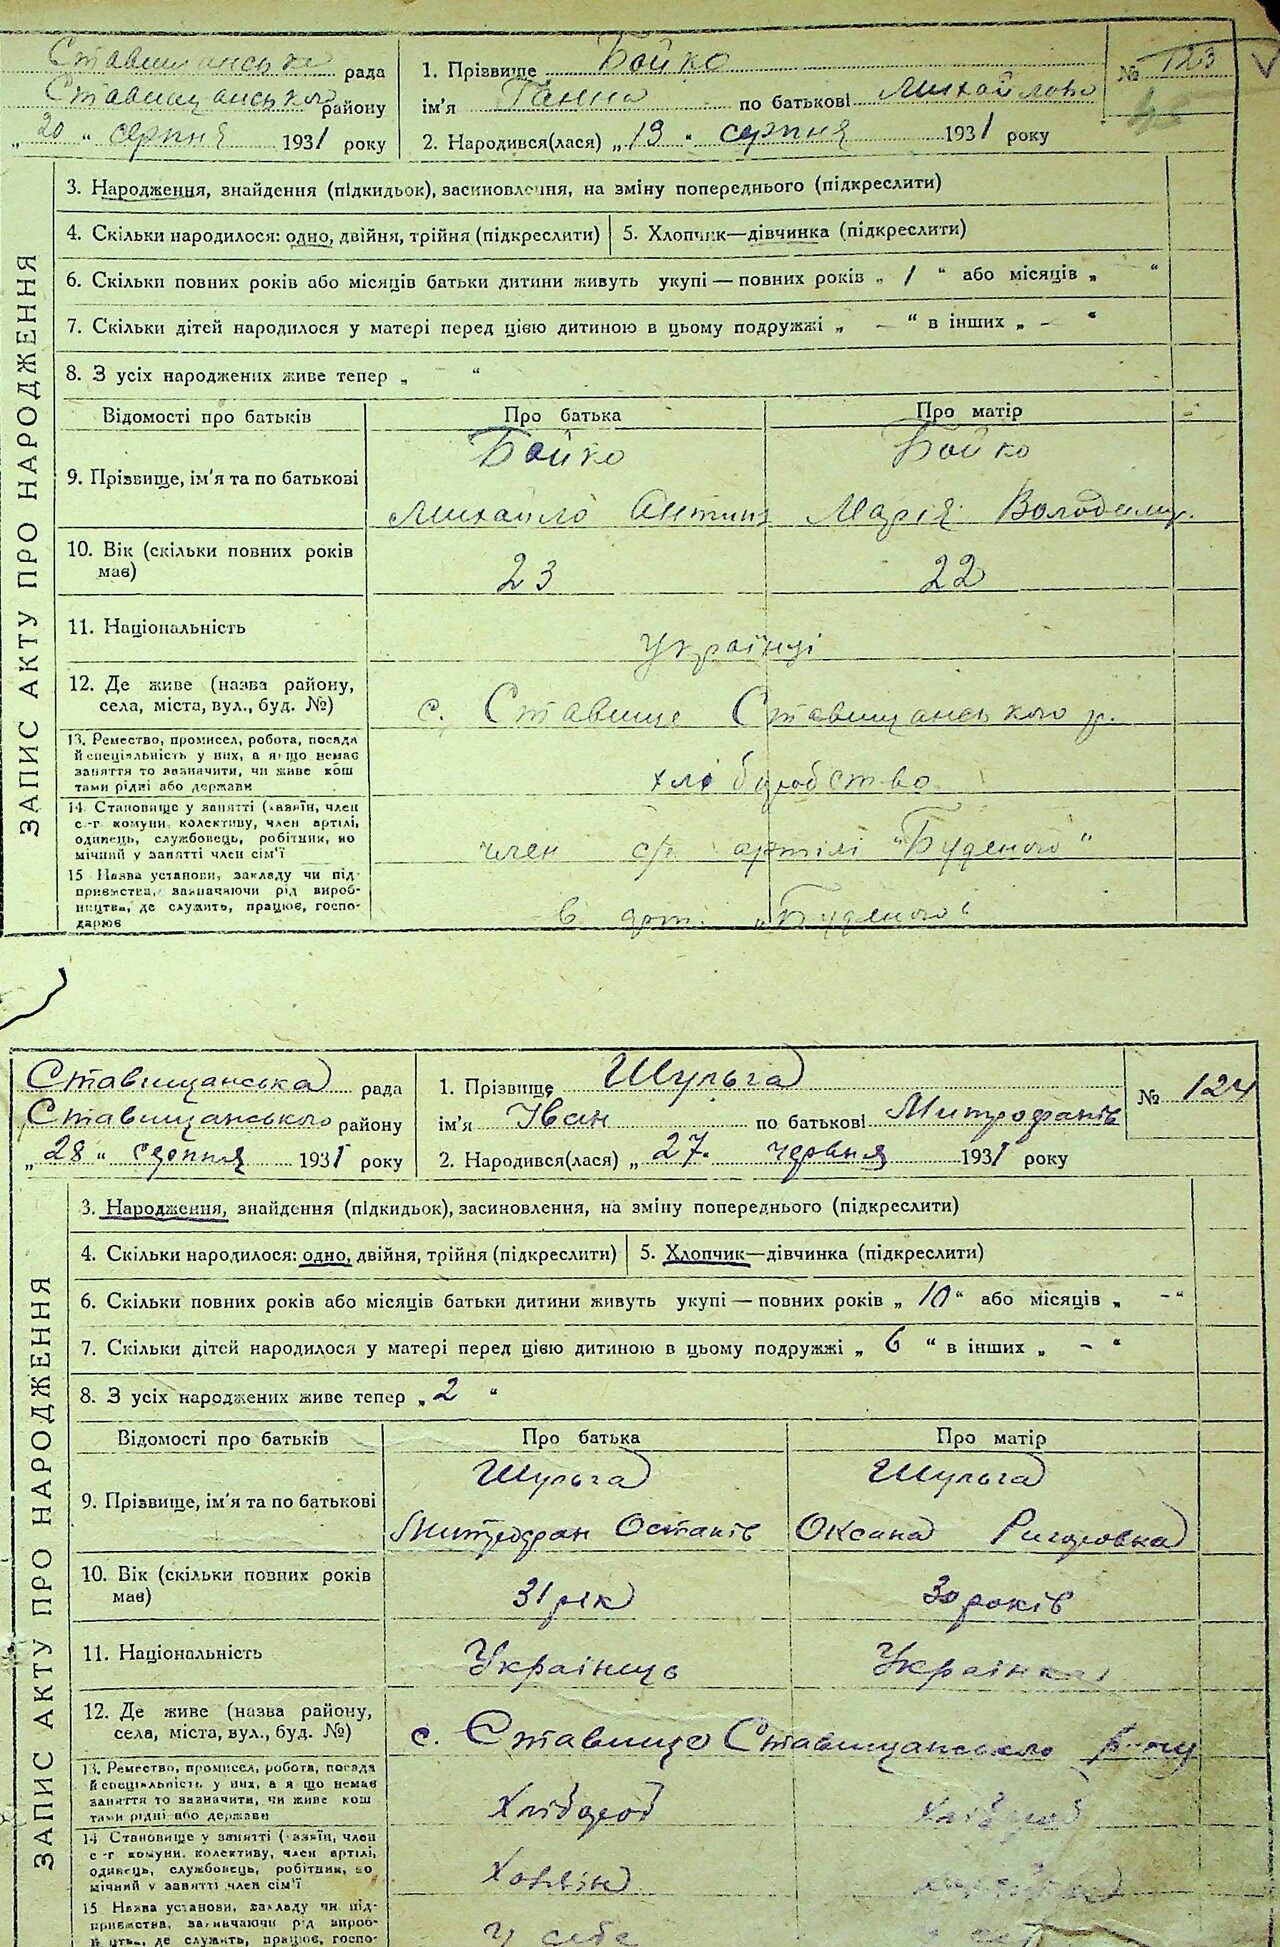 Ставищанська рада
Ставищанського району
„20“ серпня 1931 року
1. Прізвище Бойко
ім'я Ганна по батькові Михайлова
2. Народився(лася) „19“ серпня 1931 року
№ 123
ЗАПИС АКТУ ПРО НАРОДЖЕННЯ
3. Народження, знайдення (підкидьок), засиновлення, на зміну попереднього (підкреслити)
4. Скільки народилося: одно, двійня, трійня (підкреслити) 5. Хлопчик—дівчинка (підкреслити)
6. Скільки повних років або місяців батьки дитини живуть укупі — повних років „ 1 “ або місяців „ “
7. Скільки дітей народилося у матері перед цією дитиною в цьому подружжі „ – “ в інших „ – “
8. З усіх народжених живе тепер „ “
Відомості про батьків Про батька Про матір
9. Прізвище, ім'я та по батькові
Бойко Бойко
Михайло Антин Марія Володимир.
10. Вік (скільки повних років
має)
23 22
11. Національність
українці
12. Де живе (назва району,
села, міста, вул., буд. №)
с. Ставище Ставищанського р.
13. Ремество, промисел, робота, посада
й спеціяльність у них, а якщо немає
заняття то зазначити, чи живе кош
тами рідні або держави
хліборобство
14. Становище у занятті (хазяїн, член
с-г комуни, колективу, член артілі,
одинець, службовець, робітник, по
мічний у занятті член сім'ї
член с/г артілі "Буденого"
15 Назва установи, закладу чи під-
приємства, зазначаючи рід вироб-
ництва, де служить, працює, госпо-
дарює
в арт. „Буденого“
Ставищанська рада
Ставищанського району
„28“ серпня 1931 року
1. Прізвище Шульга
ім'я Іван по батькові Митрофанів
2. Народився(лася) „27“ червня 1931 року
№ 124
ЗАПИС АКТУ ПРО НАРОДЖЕННЯ
3. Народження, знайдення (підкидьок), засиновлення, на зміну попереднього (підкреслити)
4. Скільки народилося: одно, двійня, трійня (підкреслити) 5. Хлопчик—дівчинка (підкреслити)
6. Скільки повних років або місяців батьки дитини живуть укупі — повних років „ 10 “ або місяців „ – “
7. Скільки дітей народилося у матері перед цією дитиною в цьому подружжі „ 6 “ в інших „ – “
8. З усіх народжених живе тепер „ 2 “
Відомості про батьків Про батька Про матір
9. Прізвище, ім'я та по батькові
Шульга Шульга
Митрофан Остапів Оксана Ригоровна
10. Вік (скільки повних років
має)
31 рік 30 років
11. Національність
Українець Українка
12. Де живе (назва району,
села, міста, вул., буд. №)
с. Ставище Ставищанського р-ну
13. Ремество, промисел, робота, посада
й спеціяльність у них, а якщо немає
заняття то зазначити, чи живе кош
тами рідні або держави
Хлібороб Хлібороб
14 Становище у занятті (хазяїн, член
с-г комуни, колективу, член артілі,
одинець, службовець, робітник, по
мічний у занятті член сім'ї
Хазяїн
15 Назва установи, закладу чи під-
приємства, зазначаючи рід вироб-
ництва, де служить, працює, госпо-
у себе